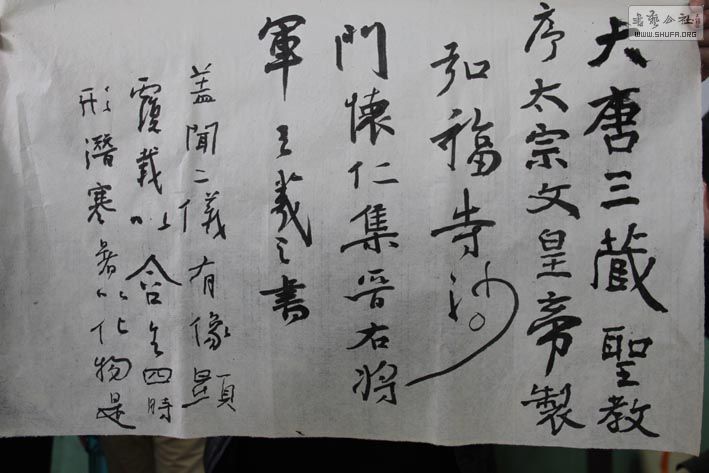 大唐三蔵聖教
序太宗文皇帝製
弘福寺沙
門懷仁集晉右將
軍王羲之書
蓋聞二儀有像顯
覆載以含生四時
形潛寒暑以化物是
書藝公社
WWW.SHUFA.ORG